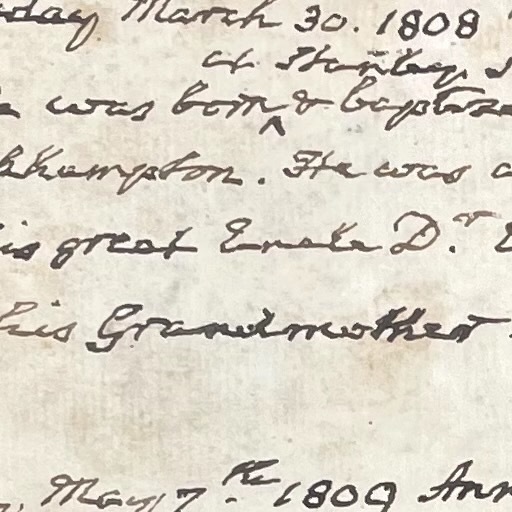 day March 30. 1808
at Stanley
was born ^ & baptize
khampton. He was
is great Uncle D.r
his Grandmother
May 7.th 1809 Ann